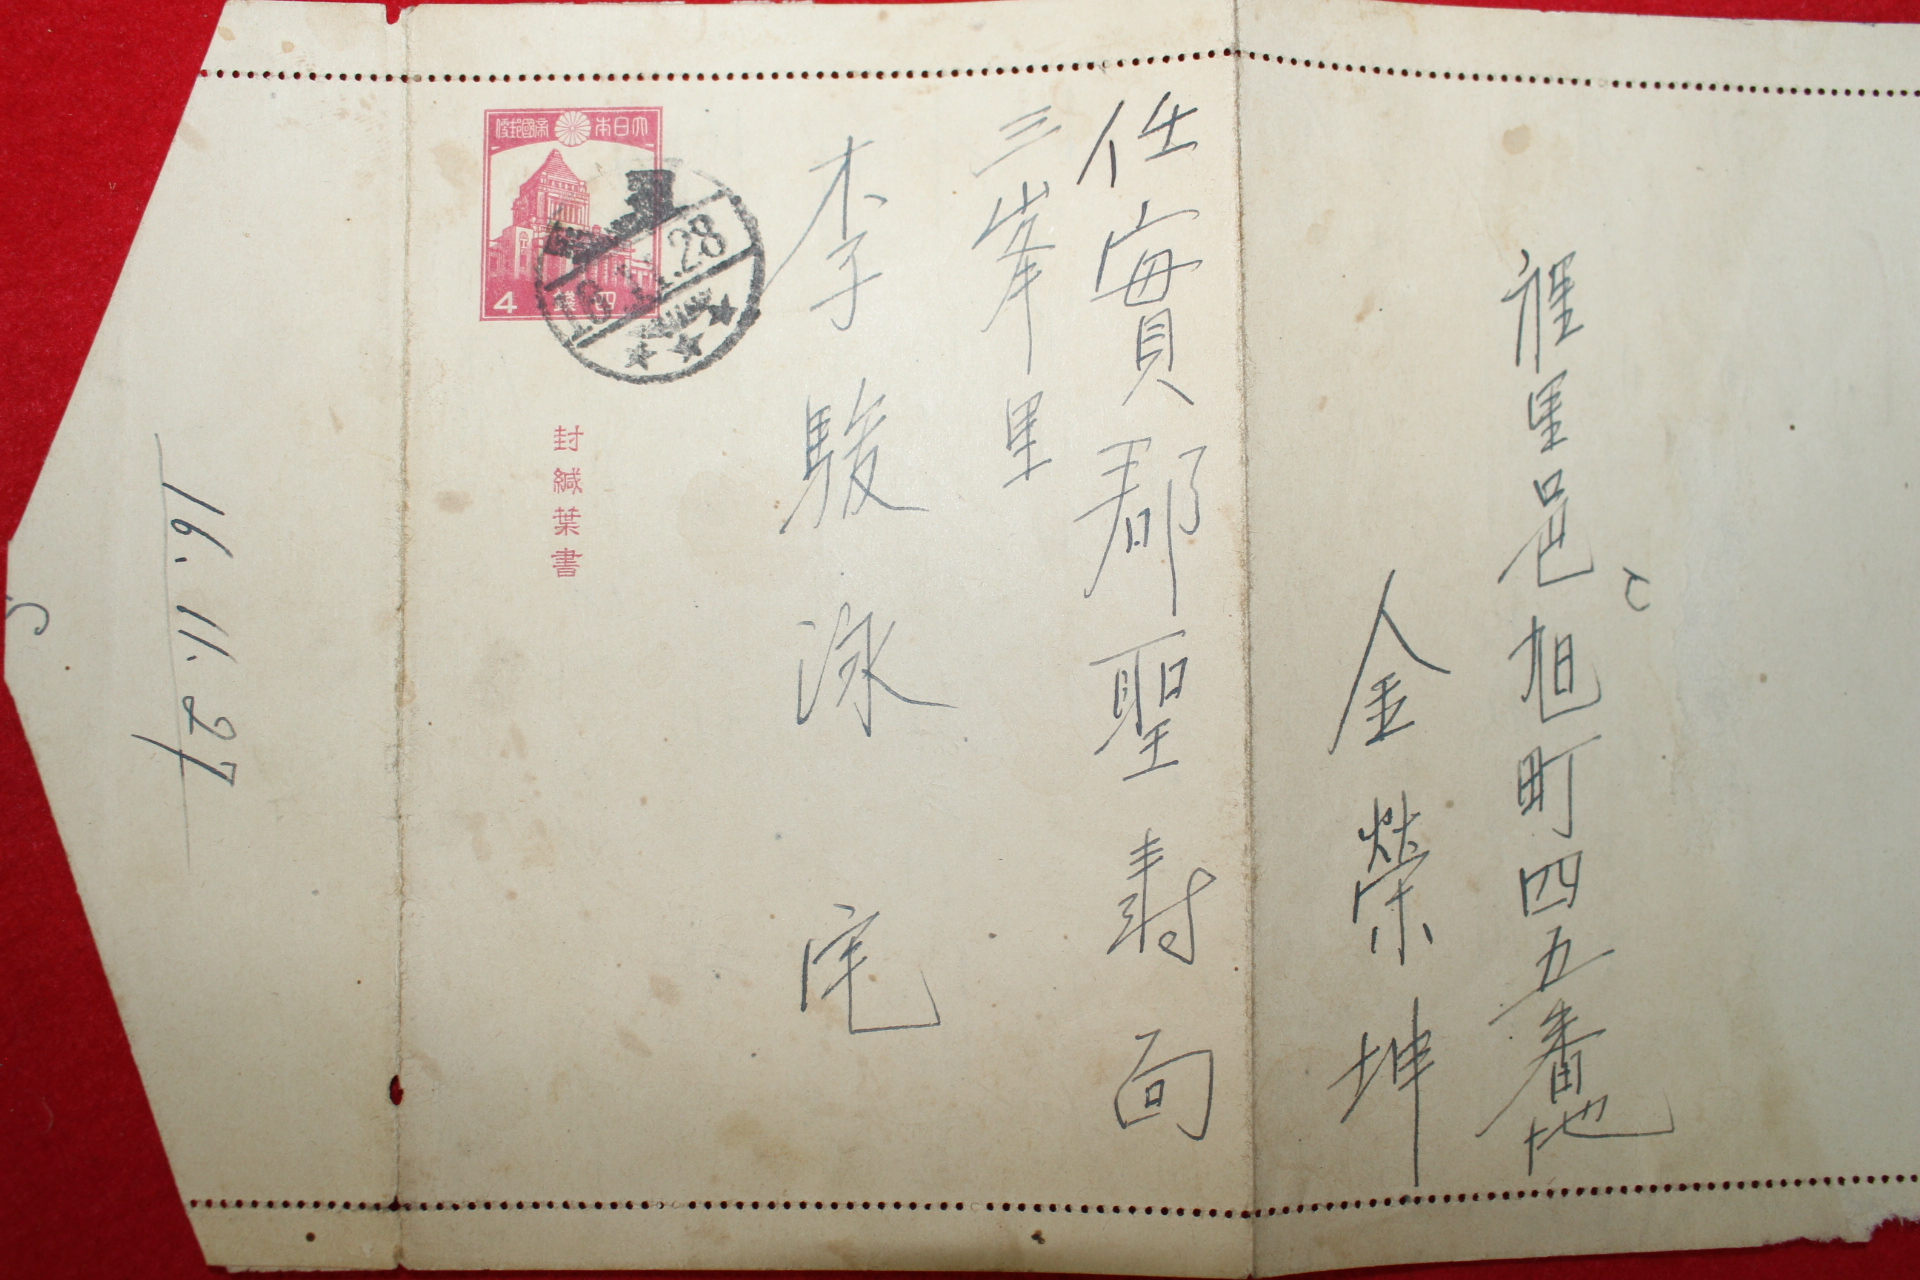 裡里邑旭町四五番地
金榮坤
任實郡聖壽面
三峯里
李駿泳宅
大日本
帝國郵便
4 錢四
16.11.28
封緘葉書
16. 11. 27